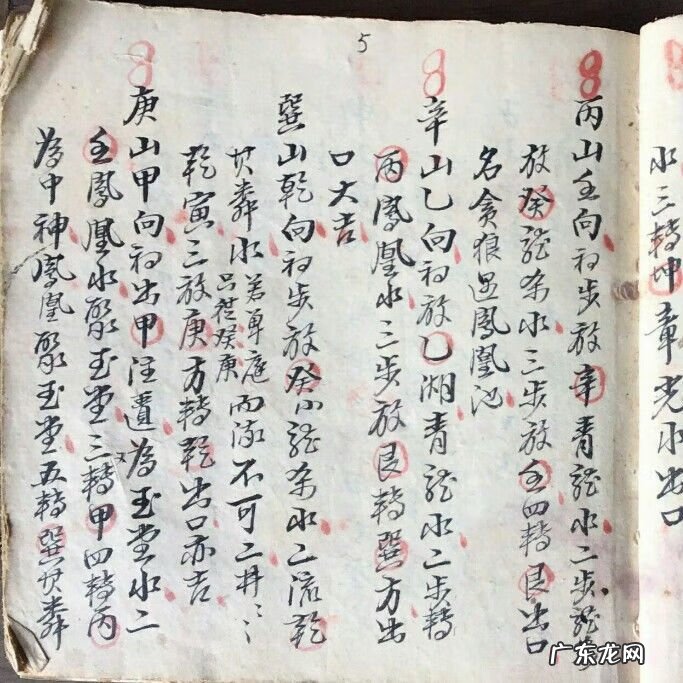 水三轉坤章光水出口
5
丙山壬向初步放辛青龍水二步龍
放癸龍水三步放壬四轉艮出口
名貪狼遇鳳凰池
辛山乙向初放乙湖青龍水二步轉
丙鳳凰水三步放艮轉巽方出
口大吉
巽山乾向初步放癸小龍水二流乾
水若單庭而流不可二井
只從癸庚
乾寅三放庚方轉乾出口亦吉
庚山甲向初出甲注為玉堂水二
壬鳳凰水聚玉堂三轉甲四轉丙
為中神鳳凰聚玉堂五轉巽
广东龙网